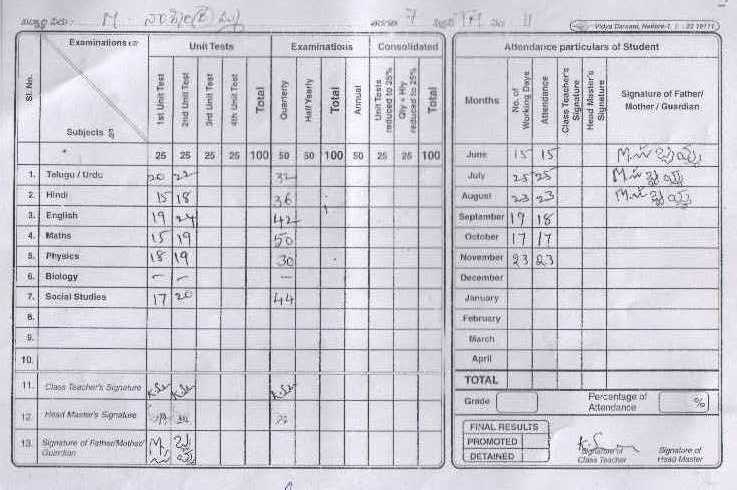 M.
7
II
Vidya Darsani, Nellore-1
Examinations
Unit Tests
Examinations
Consolidated
Sl. No.
Subjects
1st Unit Test
2nd Unit Test
3rd Unit Test
4th Unit Test
Total
Quarterly
Half Yearly
Total
Annual
Unit Tests reduced to 25%
Qly + Hly reduced to 25%
Total
25 25 25 25 100 50 50 100 50 25 25 100
1. Telugu / Urdu 20 22 32
2. Hindi 15 18 36
3. English 19 24 42
4. Maths 15 19 50
5. Physics 18 19 30
6. Biology – – –
7. Social Studies 17 20 44
8.
9.
10.
11. Class Teacher's Signature
12. Head Master's Signature
13. Signature of Father/Mother/
Guardian
Attendance particulars of Student
Months
No. of Working Days
Attendance
Class Teacher's Signature
Head Master's Signature
Signature of Father/
Mother / Guardian
June 15 15
July 25 25
August 23 23
September 19 18
October 17 17
November 23 23
December
January
February
March
April
TOTAL
Grade
Percentage of
Attendance
%
FINAL RESULTS
PROMOTED
DETAINED
Signature of
Class Teacher
Signature of
Head Master